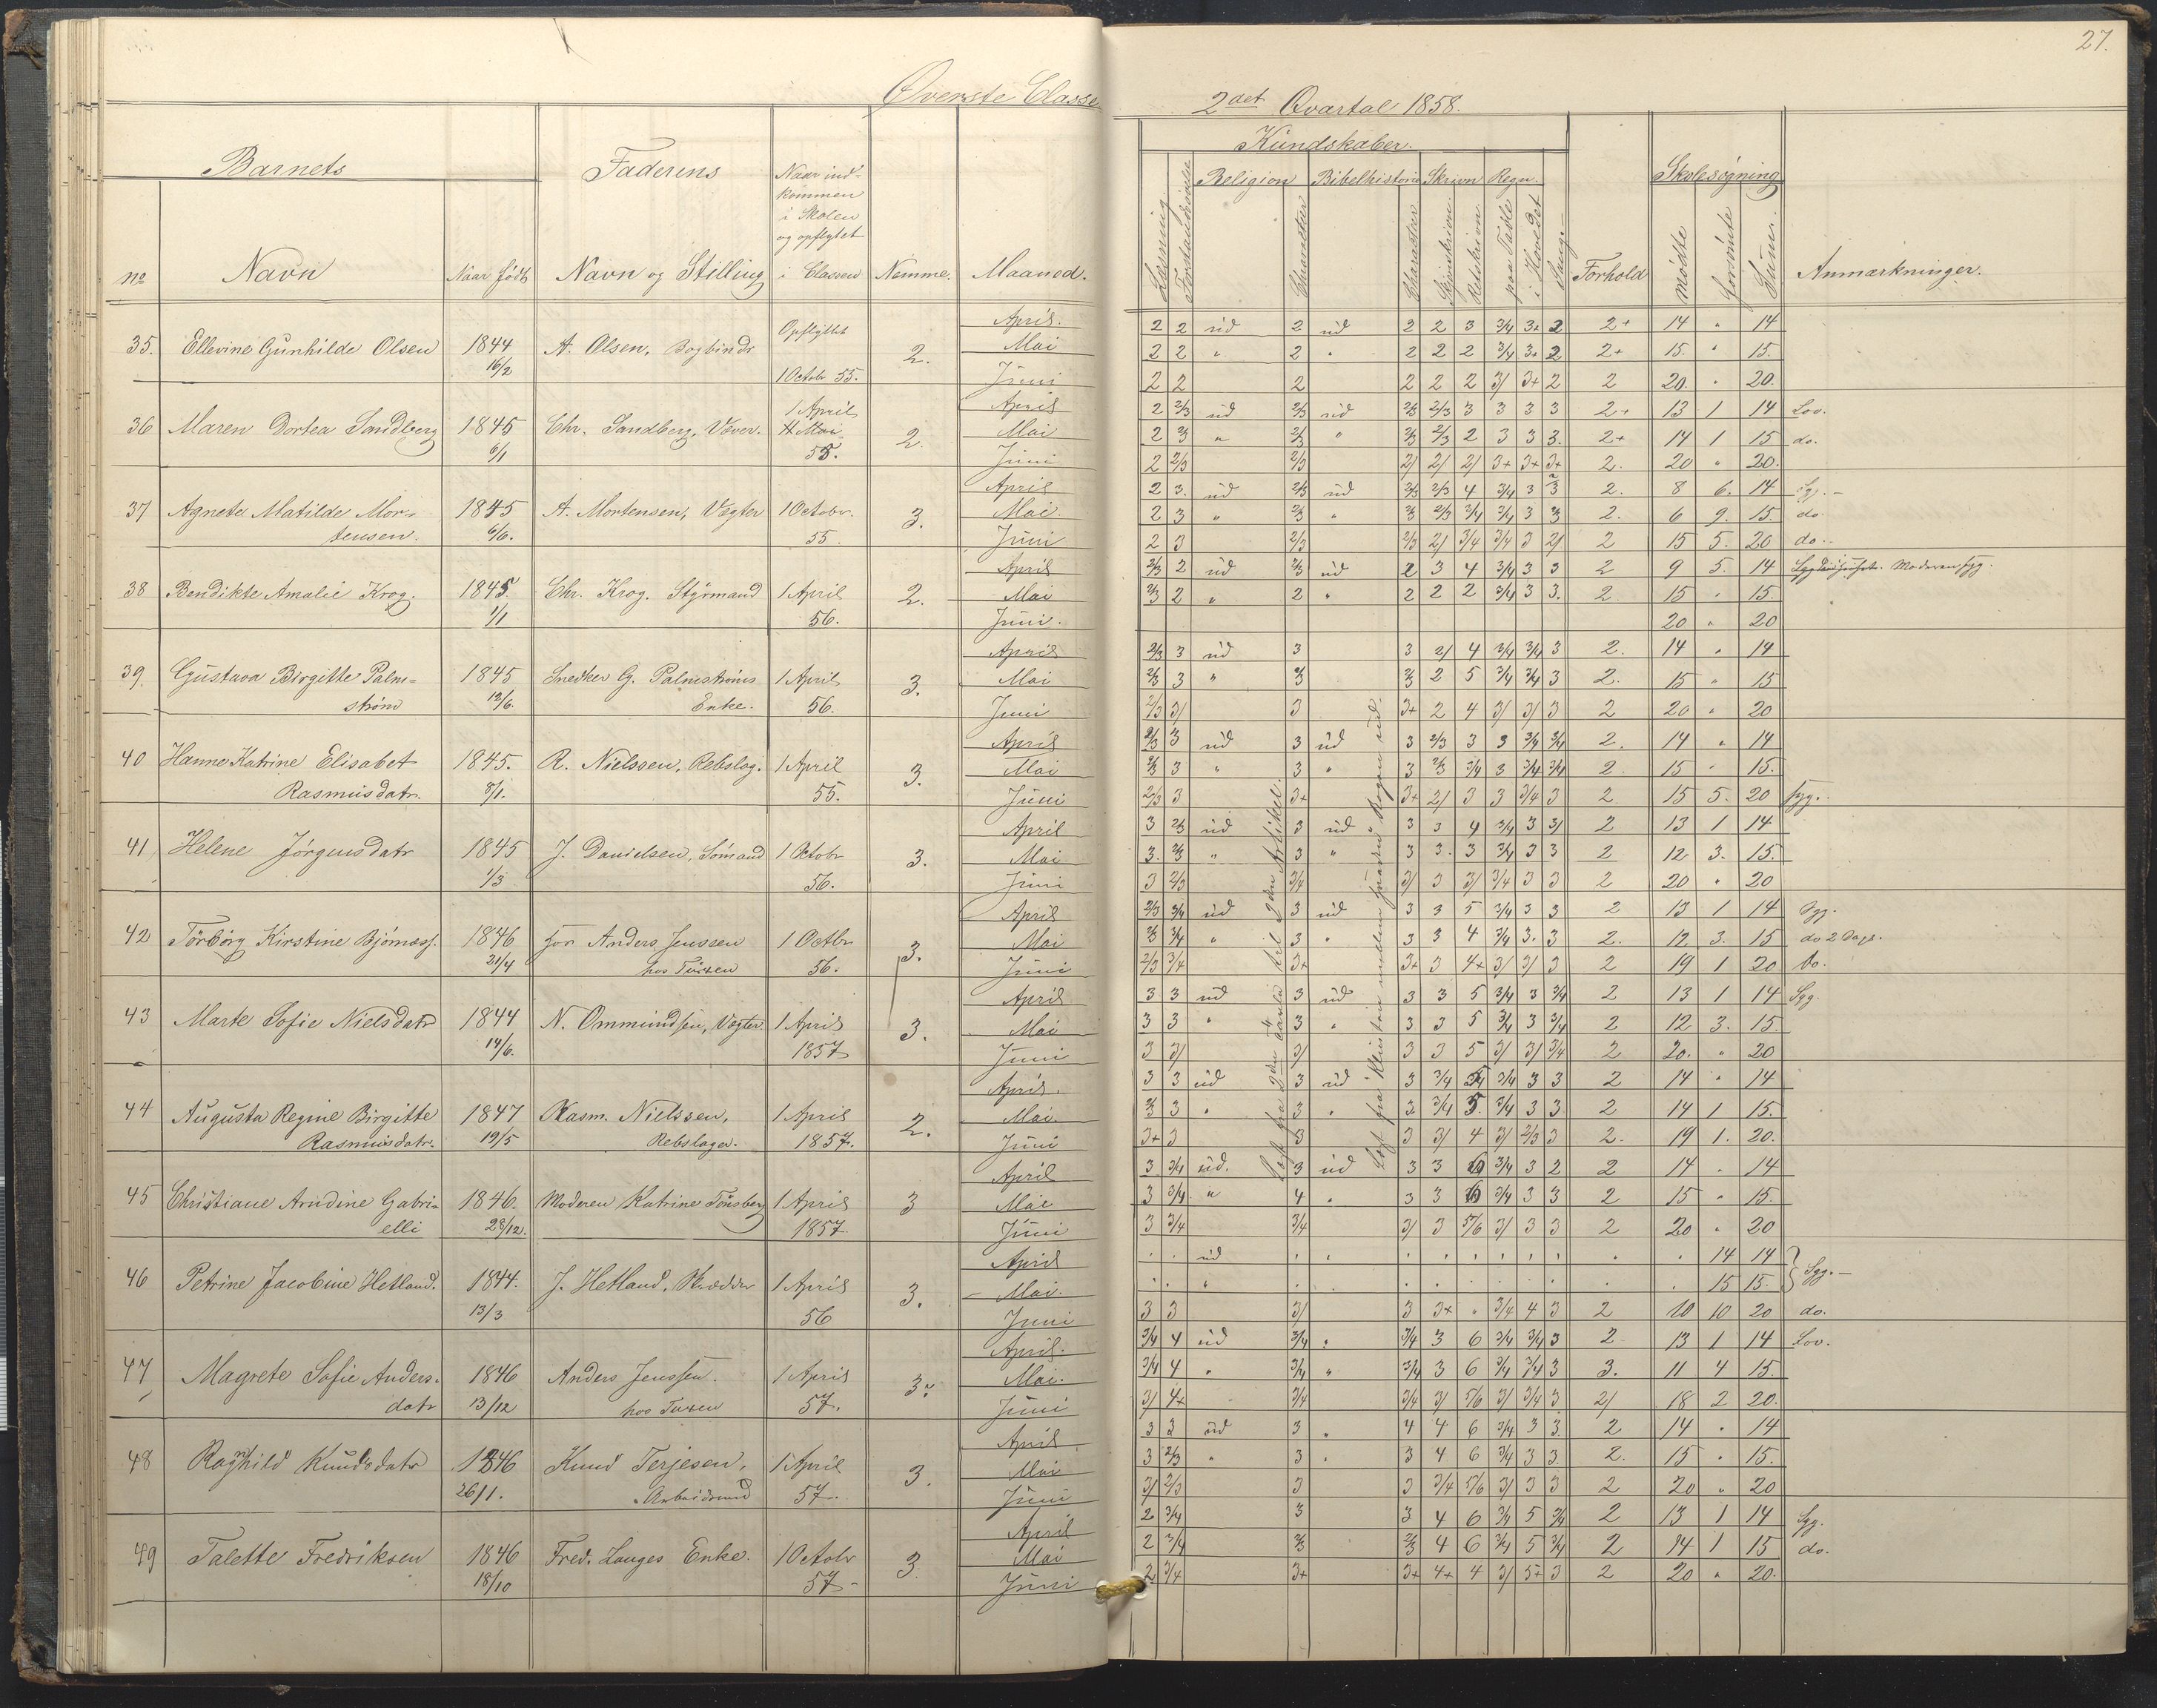 27.
Øverste Classe
2det Qvartal 1858.
Barnets
Faderens
Naar ind-
kommen
i Skolen
og opflyttet
i Classen
Kundskaber.
Religion Bibelhistorie Skrivn Regn.
Skolesøgning
No Navn Naar født Navn og Stilling Nemme. Maaned.
Læsning Forstandsøvelse Charakter Charakter Skjønskrivn. Retskrivn. paa Tavle i Hovedet Sang.
Forhold mødte forsømte Summ. Anmærkninger.
35. Ellevine Gunhilde Olsen 1844 16/2 A. Olsen, Bogbindr Opflyttet 1 Octobr 55. 2.
April. 2 2 ud 2 ud 2 2 3 3/4 3+ 2 2+ 14 " 14
Mai 2 2 " 2 " 2 2 2 3/4 3+ 2 2+ 15. " 15.
Juni 2 2 2 2 2 2 3/ 3+ 2 2 20. " 20.
36 Maren Dortea Sandberg 1845 6/1 Chr. Sandberg, Væver. 1 April Mai 55. 2.
April 2 2/3 ud 2/3 ud 2/3 2/3 3 3 3 3 2+ 13 1 14 Lov.
Mai 2 2/3 " 2/3 " 2/3 2/3 2 3 3 3. 2+ 14 1 15 do.
Juni 2 2/3 2/3 2/ 2/ 2/ 3+ 3+ 3+ 2. 20 " 20.
37 Agnete Matilde Mor-
tensen. 1845 6/6. A. Mortensen, Vægter 1 Octobr. 55. 3.
April 2 3. ud 2/3 ud 2/3 2/3 4 3/4 3 3 2. 8 6. 14 Syg.
Mai 2 3 " 2/3 " 2/3 2/3 3/4 3/4 3 2. 6 9. 15. do.
Juni 2 3 2/3 2/3 2/ 3/4 3/4 3 2/ 2 15 5. 20 do.
38 Bendikte Amalie Krog. 1845 1/1 Chr. Krog. Styrmand 1 April 56. 2.
April 2/3 2 ud 2/3 ud 2 3 4 3/4 3 3 2 9 5. 14 Moderen syg.
Mai 2/3 2 " 2 " 2 2 2 3/4 3 3. 2 15 " 15
Juni. 20 " 20
39. Gustava Birgitte Palm-
strøm 1845 12/6. Snedker G. Palmstrøms
Enke. 1 April 56. 3.
April 2/3 3 ud 3 3 2/ 4 3/4 3/4 3 2. 14 " 14
Mai 2/3 3 " 2/3 2 5 3/4 3/4 3 2. 15 " 15
Juni 2/3 3/ 3 3+ 2 4 3/ 3/ 3 2 20 " 20
40 Hanne Katrine Elisabet
Rasmusdatr. 1845. 8/1. R. Nielssen, Rebslag. 1 April 55. 3.
April 2/3 3 ud 3 ud 3 2/3 3 3 3/4 3/4 2. 14 " 14
Mai 2/3 3 " 3 " 3 2/3 3/4 3 3/4 3/4 2 15 " 15.
Juni 2/3 3 3+ 3+ 2/ 3 3 3/4 3 2. 15 5. 20 syg.
41 Helene Jørgensdatr 1845 1/3 J. Danielsen, Sømand 1 Octobr 56. 3.
April 3 2/3 ud 3 ud 3 3 4 3/4 3 3/ 2 13 1 14
Mai 3. 2/3 " 3 " 3 3. 3 3/4 3 3 2 12 3. 15.
Juni 3 2/3 3/4 3/ 3 3/ 3/4 3 3 2 20 " 20
42 Torborg Kirstine Bjørnæss. 1846 21/4 for Anders Jenssen
hos Tussen 1 Octbr 56. 3.
April 2/3 3/4 ud 3 ud 3 3 5 3/4 3 3 2 13 1 14 Syg.
Mai 2/3 3/4 " 3 " 3 3 4 3/4 3. 3 2. 12 3. 15 do 2 Dage.
Juni 2/3 3/4 3+ 3+ 3 4+ 3/ 3/ 3 2 19 1 20 do.
43 Marte Sofie Nielsdatr 1844 14/6. N. Ommundsen, Vægter 1 April 1857 3.
April 3 3 ud 3 ud 3 3 5 3/4 3 3/4 2 13 1 14 Syg.
Mai 3 3 " 3 " 3 3 5 3/4 3 3/4 2 12 3. 15.
Juni 3 3/ 3/ 3 3 5 3/ 3/ 3/4 2 20. " 20
44 Augusta Regine Birgitte
Rasmusdatr. 1847 19/5 Rasm. Nielssen,
Rebslager. 1 April 1857. 2.
April. 3 3 ud 3 ud 3 3/4 3/4 3 3 2 14 " 14
Mai. 2/3 3 " 3 " 3 3/4 5. 3/4 3 3 2 14 1 15.
Juni 3+ 3 3 3 3/ 4 3/ 2/3 3 2. 19 1. 20.
45 Christiane Arndine Gabri-
elli 1846. 23/12. Moderen Katrine Tønsberg 1 April 1857 3
April 3 3/4 ud. 3 ud 3 3 6 3/4 3 2 2 14 " 14
Mai 3 3/4 " 4 " 3 3 6 3/4 3 3 2 15 " 15.
Juni 3 3/4 3/4 3/ 3 5/6 3/ 3 3 2 20 " 20
46 Petrine Jacobine Hetland. 1844. 13/3 J. Hetland, Skrædder 1 April 56 3.
April ud 14 14 Syg.
Mai. " 15 15.
Juni 3 3 3/ 3 3+ " 3/4 4 3 2 10 10 20 do.
47 Magrete Sofie Anders-
datr 1846 13/12 Anders Jenssen.
hos Tussen 1 April 57. 3.
April. 3/4 4 ud 3/4 " 3/4 3 6 3/4 3/4 3 2 13 1 14 Lov.
Mai. 3/4 4 " 3/4 " 3/4 3 6 3/4 3/4 3 3. 11 4 15.
Juni 3/ 4+ 3/4 3/4 3/ 5/6 3/ 3/4 3 2/ 18 2 20.
48 Ragnhild Knudsdatr 1846 26/1. Knud Terjesen,
Arbeidsmd 1 April 57. 3.
April 3 3 ud 3 " 4 4 6 3/4 3 3 2 14 " 14
Mai 3 2/3 " 3 " 3 4 6 3/4 3 3. 2. 15 " 15.
Juni 3/ 2/3 3 3 3/4 5/6 3/ 3 3 2 20 " 20
49 Talette Fredriksen 1846 18/10 Fred. Langes Enke. 1 Octobr 57. 3.
April 2 3/4 3 3 4 6 3/4 5 3/4 2 13 1 14 Syg.
Mai 2 3/4 2/3 2/3 4 6 3/4 5 3/4 2 14 1 15 do.
Juni 2 3/4 3+ 3+ 4+ 4 3/ 5+ 3 2 20 " 20.
Læst fra 2den Tavle til 2den Artikel.